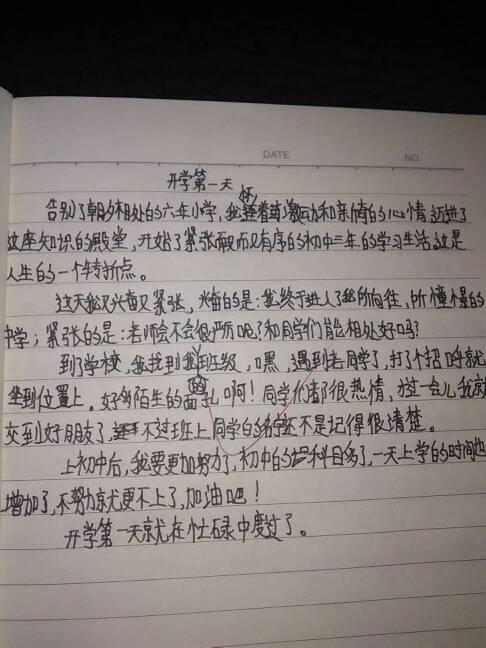 DATE NO.
开学第一天
告别了朝夕相处的六年小学，我怀着激动和亲情的心情迈进了
这座知识的殿堂，开始了紧张而又有序的初中三年的学习生活这是
人生的一个转折点。
这天我又兴奋又紧张，兴奋的是：我终于进入了我所向往，所憧憬的
中学；紧张的是：老师会不会很严厉呢？和同学们能相处好吗？
到了学校，我找到我班级，嘿，遇到老同学了，打了个招呼就
坐到位置上。好多陌生的面孔啊！同学们都很热情，才过一会儿我就
交到好朋友了，不过班上同学的名字还不是记得很清楚。
上初中后，我要更加努力了，初中的科目多了，一天上学的时间也
增加了，不努力就更不上了，加油吧！
开学第一天就在忙碌中度过了。